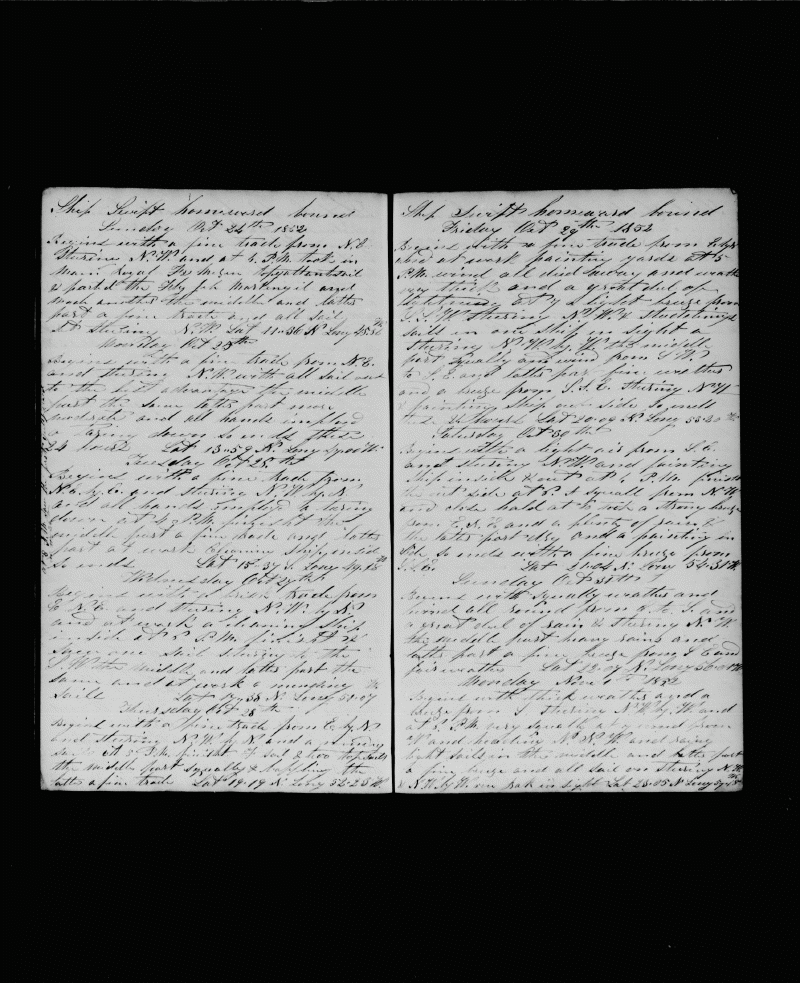 Ship Swift homeward bound
Sunday Oct 24th 1852
Begins with a fine trade from N.E.
Stearing N.W. and at 6 P.M. took in
Main Royal
& parted the Flying Jib and
made another the middle and latter
part a fine trade and all sail
Stearing N.W. Lat 11-36 N. Long 45-36
Monday Oct 25th
Begins with a fine trade from N.E.
and stearing N.W. with all sail out
to the best advantage the middle
part the same latter part more
moderate and all hands imployed
a taring down so ends these
24 hours Lat 13-59 N. Long
Tuesday Oct 26th
Begins with a fine trade from
N.E. by E. and stearing N.W. by N.
and all hands imployed a taring
down at 4 P.M. finisht the
middle part a fine trade and latter
part at work cleaning ship inside
So ends Lat 15-37 N. Long 49-18
Wednesday Oct 27th
Begins with a brisk trade from
E.N.E. and stearing N.W. by N.
and at work a cleaning ship
inside at 5 P.M. finisht it
Saw one sail stearing to the
S.W. the middle and latter part the
same and at work a mending
Sails Lat 17-38 N. Long 51-07
Thursday Oct 28th
Begins with a fine trade from E. by N.
and stearing N.W. by N. and a mending
Sails at 5 P.M. finisht sail & two top sails
the middle part squally & the
latter a fine trade Lat 19-19 N. Long 52-25 W.
Ship Swift homeward bound
Friday Oct 29th 1852
Begins with a fine trade from E. by N.
and at work painting yards at 5
P.M. wind all died away and weather
very thick and a great deal of
lightening at 7 a light breeze from
S.S.W. stearing N.W. & studdingsails
sails in one ship in sight a
stearing N.W. by W. the middle
part squally and wind from S.W.
to S.E. and latter part fine weather
and a breeze from S.S.E. stearing N.W.
& painting ship out side so ends
these 24 hours Lat 20-09 N. Long 53-20 W.
Saturday Oct 30th
Begins with a light air from S.E.
and stearing N.W. and painting
ship inside & out at 6 P.M. finisht
the out side at 8 a squall from N.W.
and close hald at 10 a strong breeze
from E.N.E. and a plenty of rain &
the latter part dry and a painting in
side so ends with a fine breeze from
S.E. Lat 21-04 N. Long 54-31 W.
Sunday Oct 31st
Begins with squally weather and
wind all round from and
a great deal of rain & stearing N.W.
the middle part heavy rains and
latter part a fine breeze from S.E. and
fair weather Lat 22-07 N. Long
Monday Nove 1st 1852
Begins with thick weather and a
breeze from S. stearing N.W. by W. and
at 5 P.M. very squally at wind from
W and heading N.N.W. and raining
light sails in the middle and latter part
a fine breeze and all sail on stearing N.W.
& N.W. by W. one bark in sight Lat 23-05 N. Long